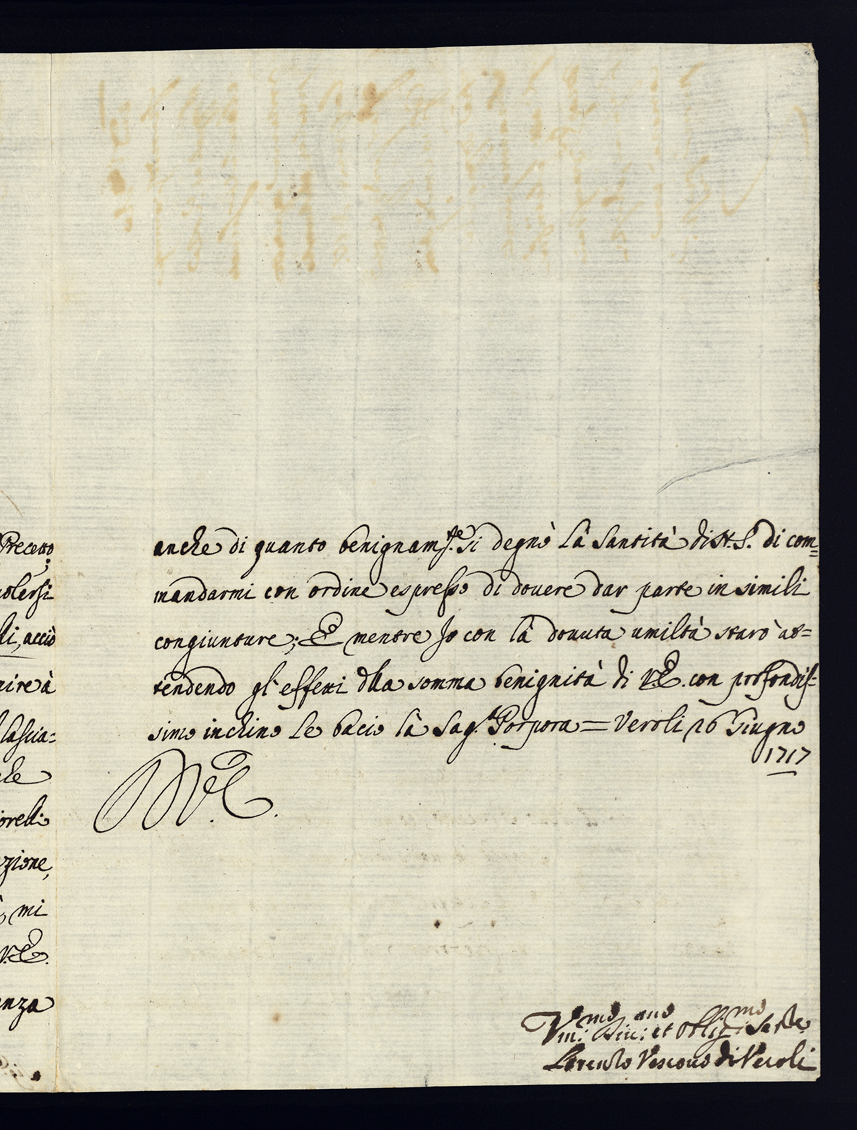 Precetto
olersi
di, acciò
nire à
lascia=
che
orelli
zione,
mi
V.E.
enza
anche di quanto benignam.te Si degnò la Santità di N. S. di com=
mandarmi con ordine espresso di douere dar parte in simili
congiunture; E mentre Jo con la douuta umiltà starò at=
tendendo gl'effetti dlla somma benignità di V.E. con profondis=
simo inchino le bacio la Sag.ta Porpora = Veroli 26 Giugno
1717
D V.E.
Vm:mo Diu:mo et Oblig:mo Ser.re
Lorenzo Vescouo di Veroli